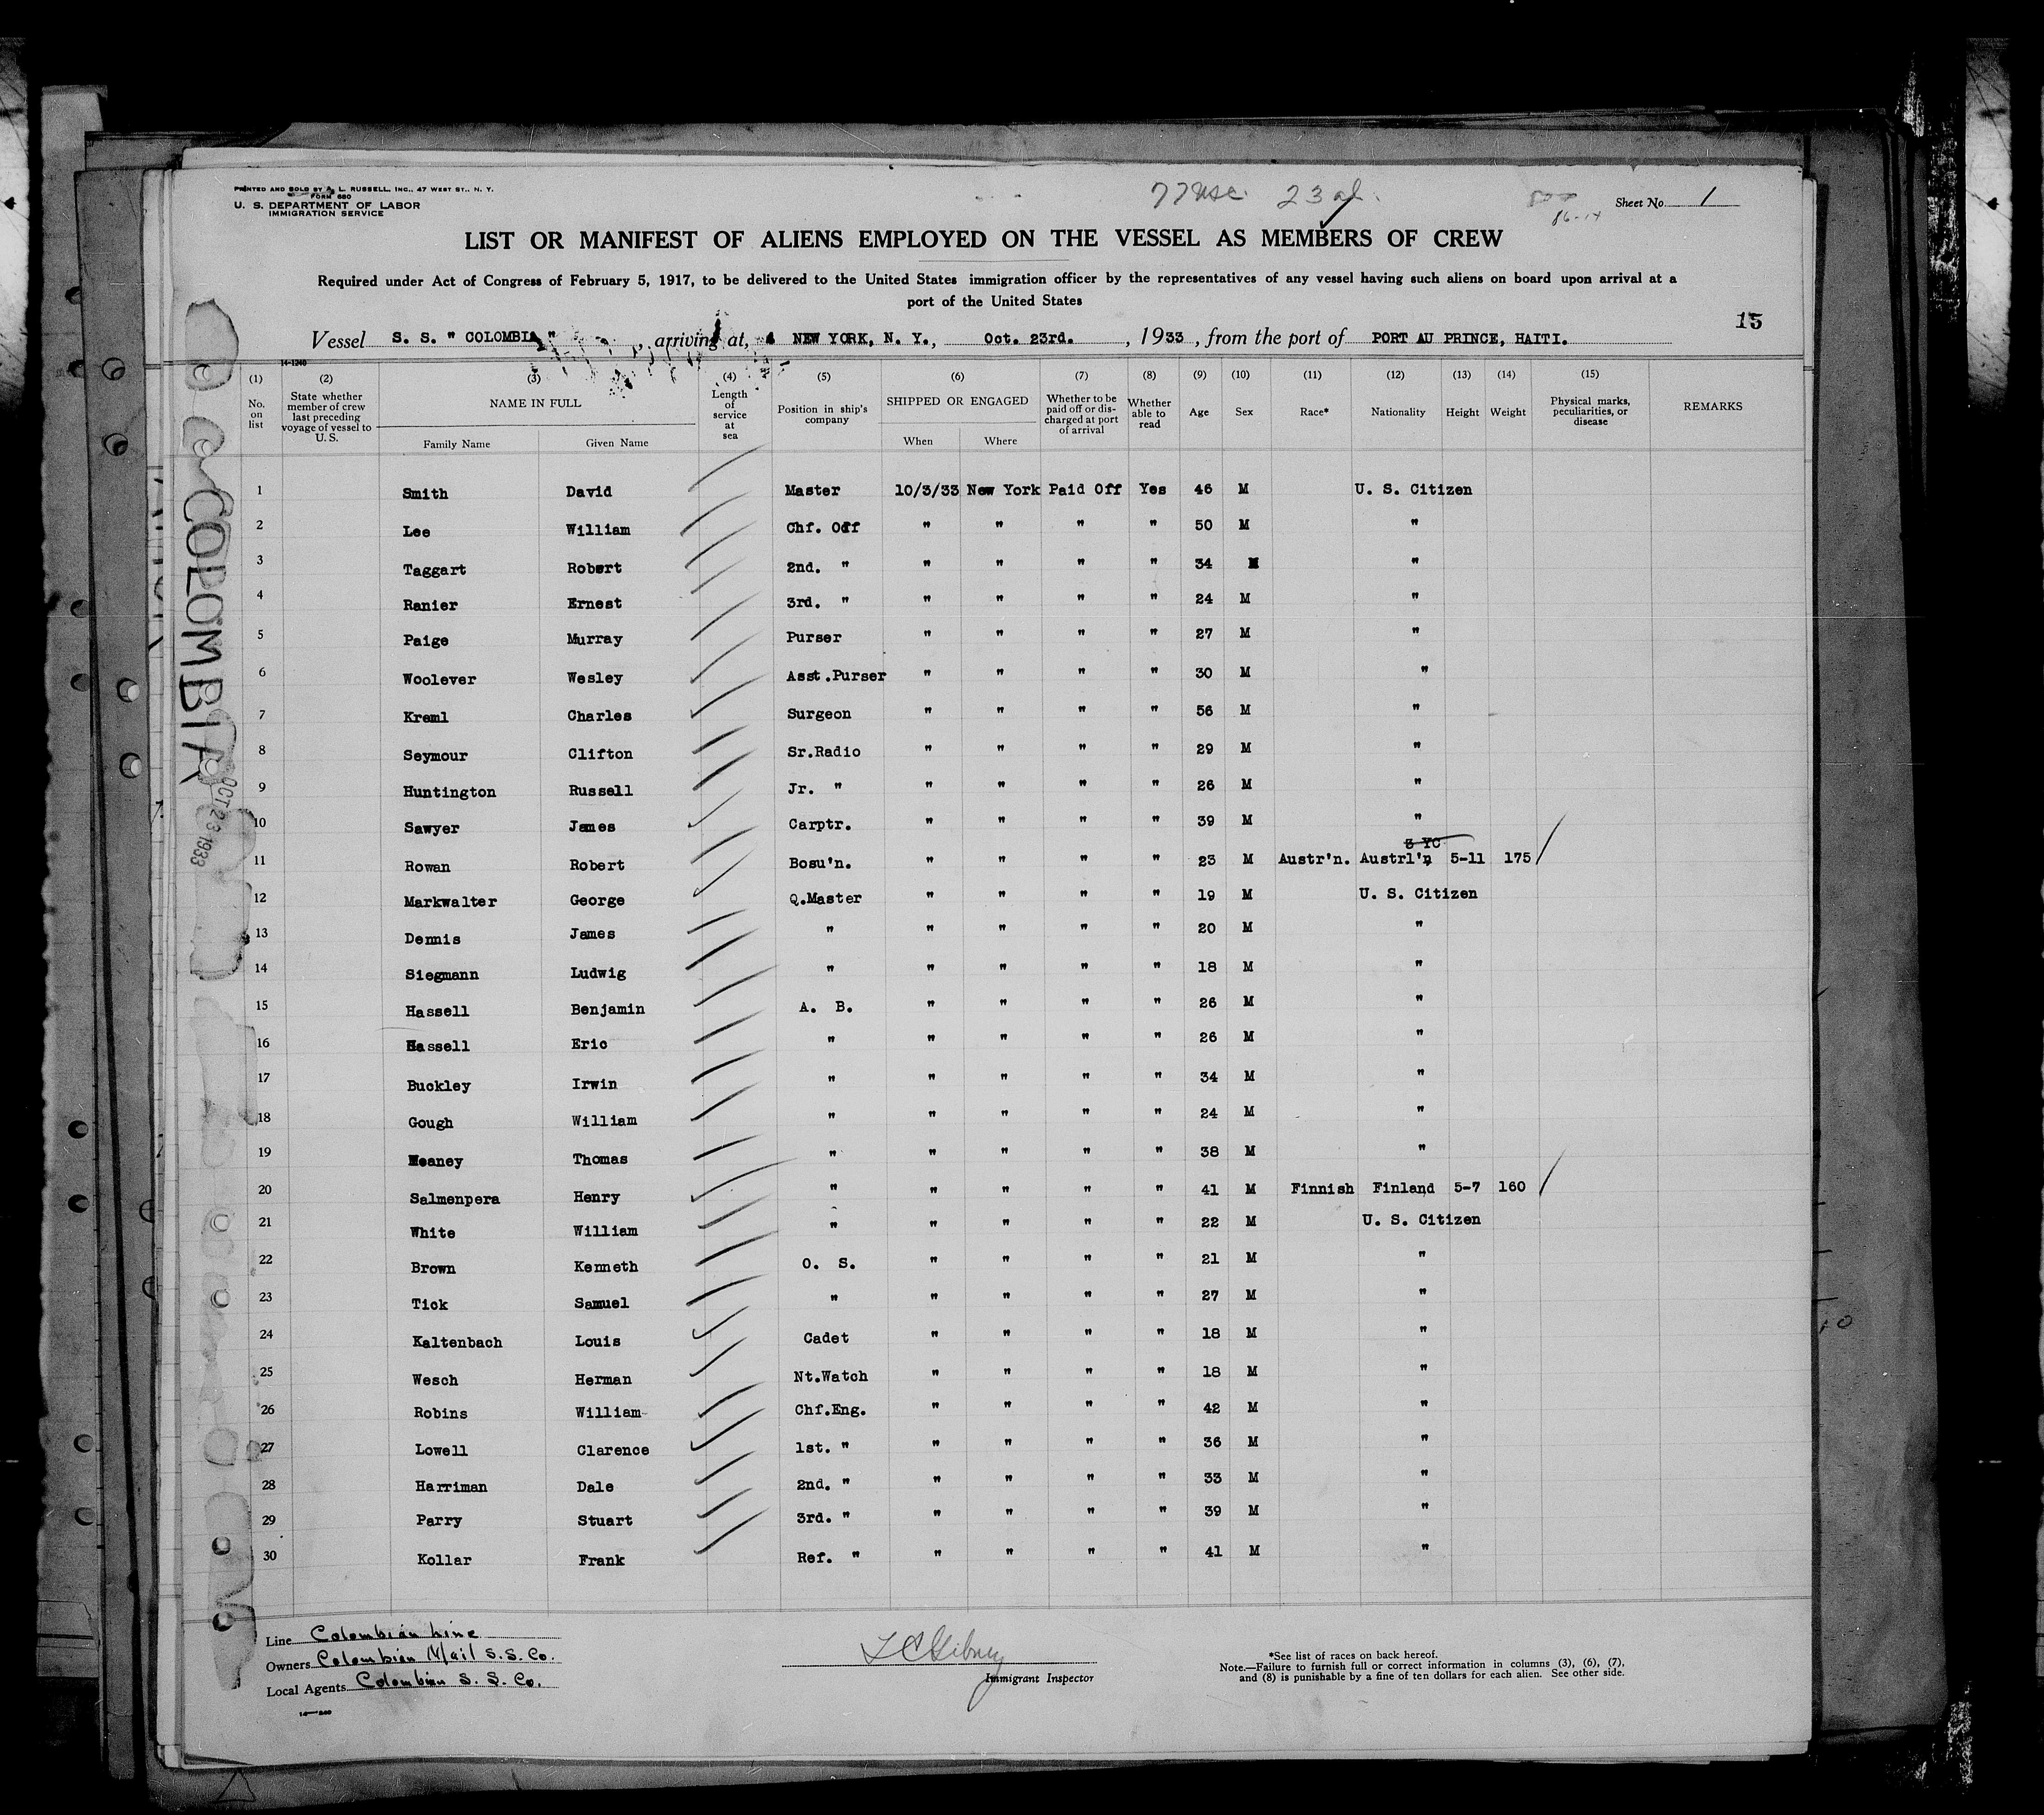 PRINTED AND SOLD BY A. L. RUSSELL, INC., 47 WEST ST., N. Y.
FORM 680
U. S. DEPARTMENT OF LABOR
IMMIGRATION SERVICE
77 usc 23 al.
86-14
Sheet No. 1
LIST OR MANIFEST OF ALIENS EMPLOYED ON THE VESSEL AS MEMBERS OF CREW
Required under Act of Congress of February 5, 1917, to be delivered to the United States immigration officer by the representatives of any vessel having such aliens on board upon arrival at a
port of the United States
15
Vessel S. S. " COLOMBIA " , arriving at, NEW YORK, N. Y., Oct. 23rd. , 1933 , from the port of PORT AU PRINCE, HAITI.
14-1240
(1) (2) (3) (4) (5) (6) (7) (8) (9) (10) (11) (12) (13) (14) (15)
No. on list State whether member of crew last preceding voyage of vessel to U. S. NAME IN FULL Length of service at sea Position in ship's company SHIPPED OR ENGAGED Whether to be paid off or discharged at port of arrival Whether able to read Age Sex Race* Nationality Height Weight Physical marks, peculiarities, or disease REMARKS
Family Name Given Name When Where
1 Smith David Master 10/3/33 New York Paid Off Yes 46 M U. S. Citizen
2 Lee William Chf. Off " " " " 50 M "
3 Taggart Robert 2nd. " " " " " 34 M "
4 Ranier Ernest 3rd. " " " " " 24 M "
5 Paige Murray Purser " " " " 27 M "
6 Woolever Wesley Asst.Purser " " " " 30 M "
7 Kreml Charles Surgeon " " " " 56 M "
8 Seymour Clifton Sr.Radio " " " " 29 M "
9 Huntington Russell Jr. " " " " " 26 M "
10 Sawyer James Carptr. " " " " 39 M "
3 YC
11 Rowan Robert Bosu'n. " " " " 23 M Austr'n. Austrl'n 5-11 175
12 Markwalter George Q.Master " " " " 19 M U. S. Citizen
13 Dennis James " " " " " 20 M "
14 Siegmann Ludwig " " " " " 18 M "
15 Hassell Benjamin A. B. " " " " 26 M "
16 Hassell Eric " " " " " 26 M "
17 Buckley Irwin " " " " " 34 M "
18 Gough William " " " " " 24 M "
19 Heaney Thomas " " " " " 38 M "
20 Salmenpera Henry " " " " " 41 M Finnish Finland 5-7 160
21 White William " " " " " 22 M U. S. Citizen
22 Brown Kenneth O. S. " " " " 21 M "
23 Tick Samuel " " " " " 27 M "
24 Kaltenbach Louis Cadet " " " " 18 M "
25 Wesch Herman Nt.Watch " " " " 18 M "
26 Robins William Chf.Eng. " " " " 42 M "
27 Lowell Clarence 1st. " " " " " 36 M "
28 Harriman Dale 2nd. " " " " " 33 M "
29 Parry Stuart 3rd. " " " " " 39 M "
30 Kollar Frank Ref. " " " " " 41 M "
COLOMBIA
OCT 23 1933
Line Colombian Line
Owners Colombian Mail S.S. Co.
Local Agents Colombian S. S. Co.
Immigrant Inspector
*See list of races on back hereof.
Note.—Failure to furnish full or correct information in columns (3), (6), (7),
and (8) is punishable by a fine of ten dollars for each alien. See other side.